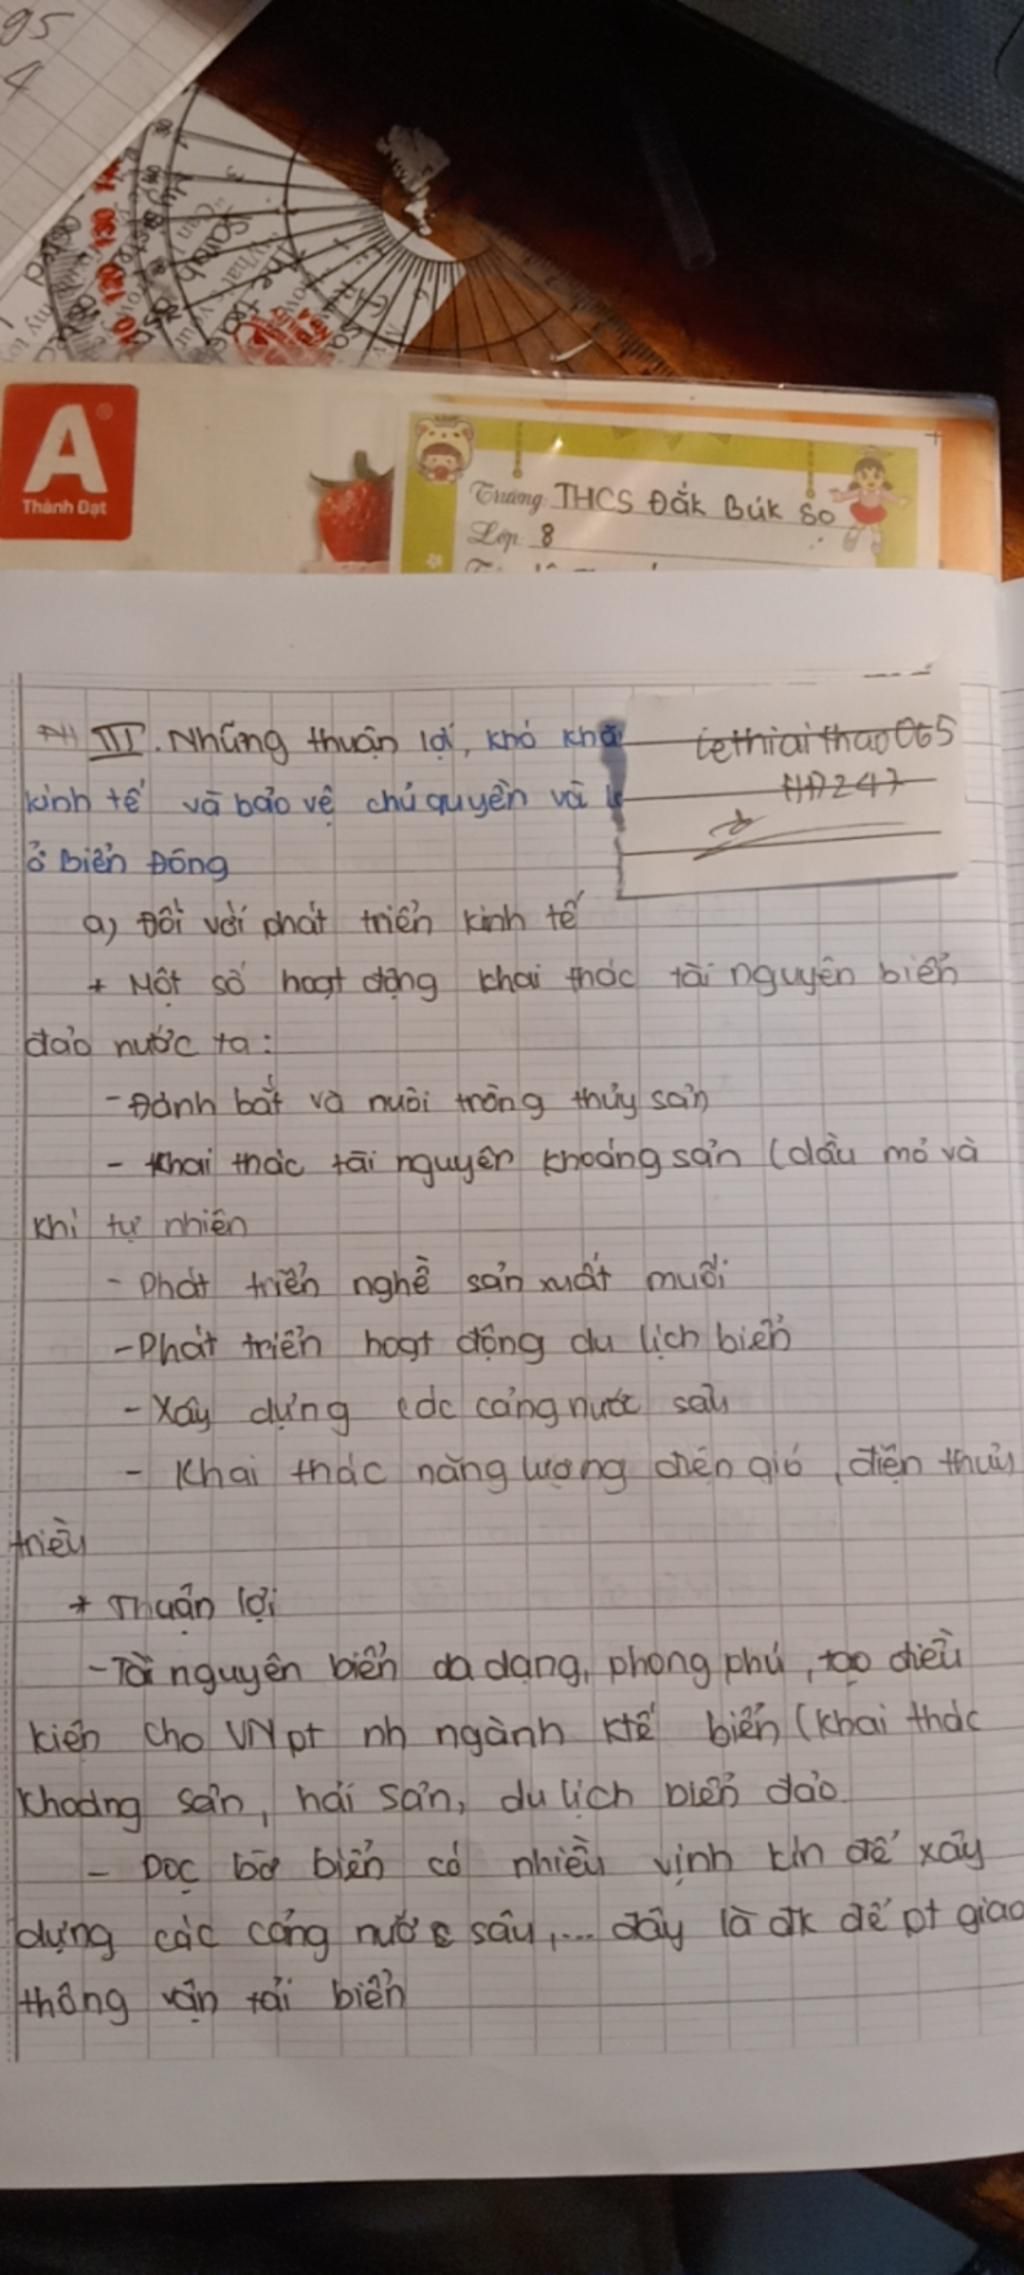 95
4
120 130
A
Thành Đạt
Trường THCS Đắk Búk So
Lớp 8
III. Những thuận lợi, khó khă
kinh tế và bảo vệ chủ quyền và
ở Biển Đông
lethiaithao065
HD247
a) Đối với phát triển kinh tế
+ Một số hoạt động khai thác tài nguyên biển
đảo nước ta:
- Đánh bắt và nuôi trồng thủy sản
- Khai thác tài nguyên khoáng sản (dầu mỏ và
khí tự nhiên
- Phát triển nghề sản xuất muối
- Phát triển hoạt động du lịch biển
- Xây dựng các cảng nước sâu
- Khai thác năng lượng điện gió, điện thuỷ
triều
+ Thuận lợi
- Tài nguyên biển đa dạng, phong phú, tạo điều
kiện cho VN pt nh ngành ktế biển (khai thác
khoáng sản, hải sản, du lịch biển đảo
- Dọc bờ biển có nhiều vịnh kín để xây
dựng các cảng nước sâu,... đây là đk để pt giao
thông vận tải biển